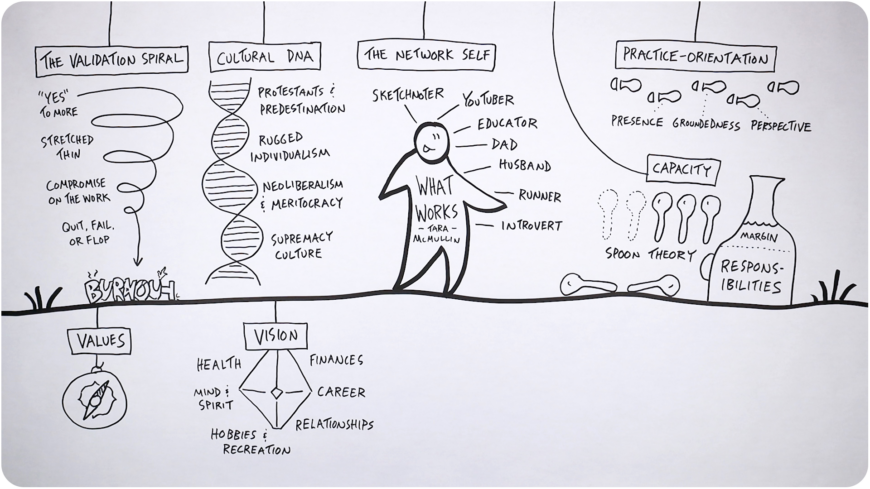 THE VALIDATION SPIRAL
"YES"
TO MORE
STRETCHED
THIN
COMPROMISE
ON THE WORK
QUIT, FAIL,
OR FLOP
BURNOUT
CULTURAL DNA
PROTESTANTS &
PREDESTINATION
RUGGED
INDIVIDUALISM
NEOLIBERALISM
& MERITOCRACY
SUPREMACY
CULTURE
THE NETWORK SELF
SKETCHNOTER
YOUTUBER
EDUCATOR
DAD
HUSBAND
RUNNER
INTROVERT
WHAT
WORKS
- TARA -
MCMULLIN
PRACTICE-ORIENTATION
PRESENCE GROUNDEDNESS PERSPECTIVE
CAPACITY
SPOON THEORY
MARGIN
RESPONS-
IBILITIES
VALUES
VISION
HEALTH
FINANCES
MIND &
SPIRIT
CAREER
HOBBIES &
RECREATION
RELATIONSHIPS